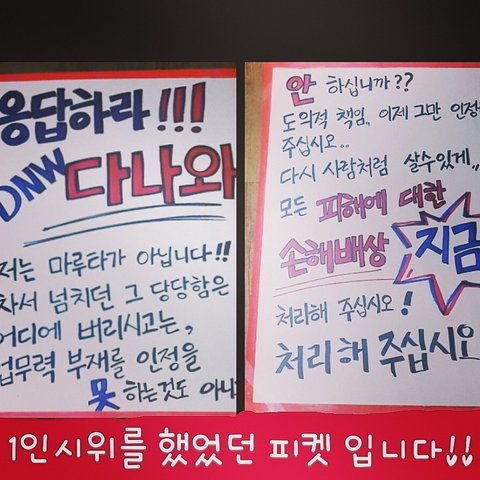 응답하라!!!
DNW 다나와
저는 마루타가 아닙니다!!
차서 넘치던 그 당당함은
어디에 버리시고는,
업무력 부재를 인정을
못 하는것도 아니
안 하십니까??
도의적 책임, 이제 그만 인정
주십시오..
다시 사람처럼 살수있게,,
모든 피해에 대한
손해배상 지금
처리해 주십시오!
처리해 주십시오
1인시위를 했었던 피켓 입니다!!